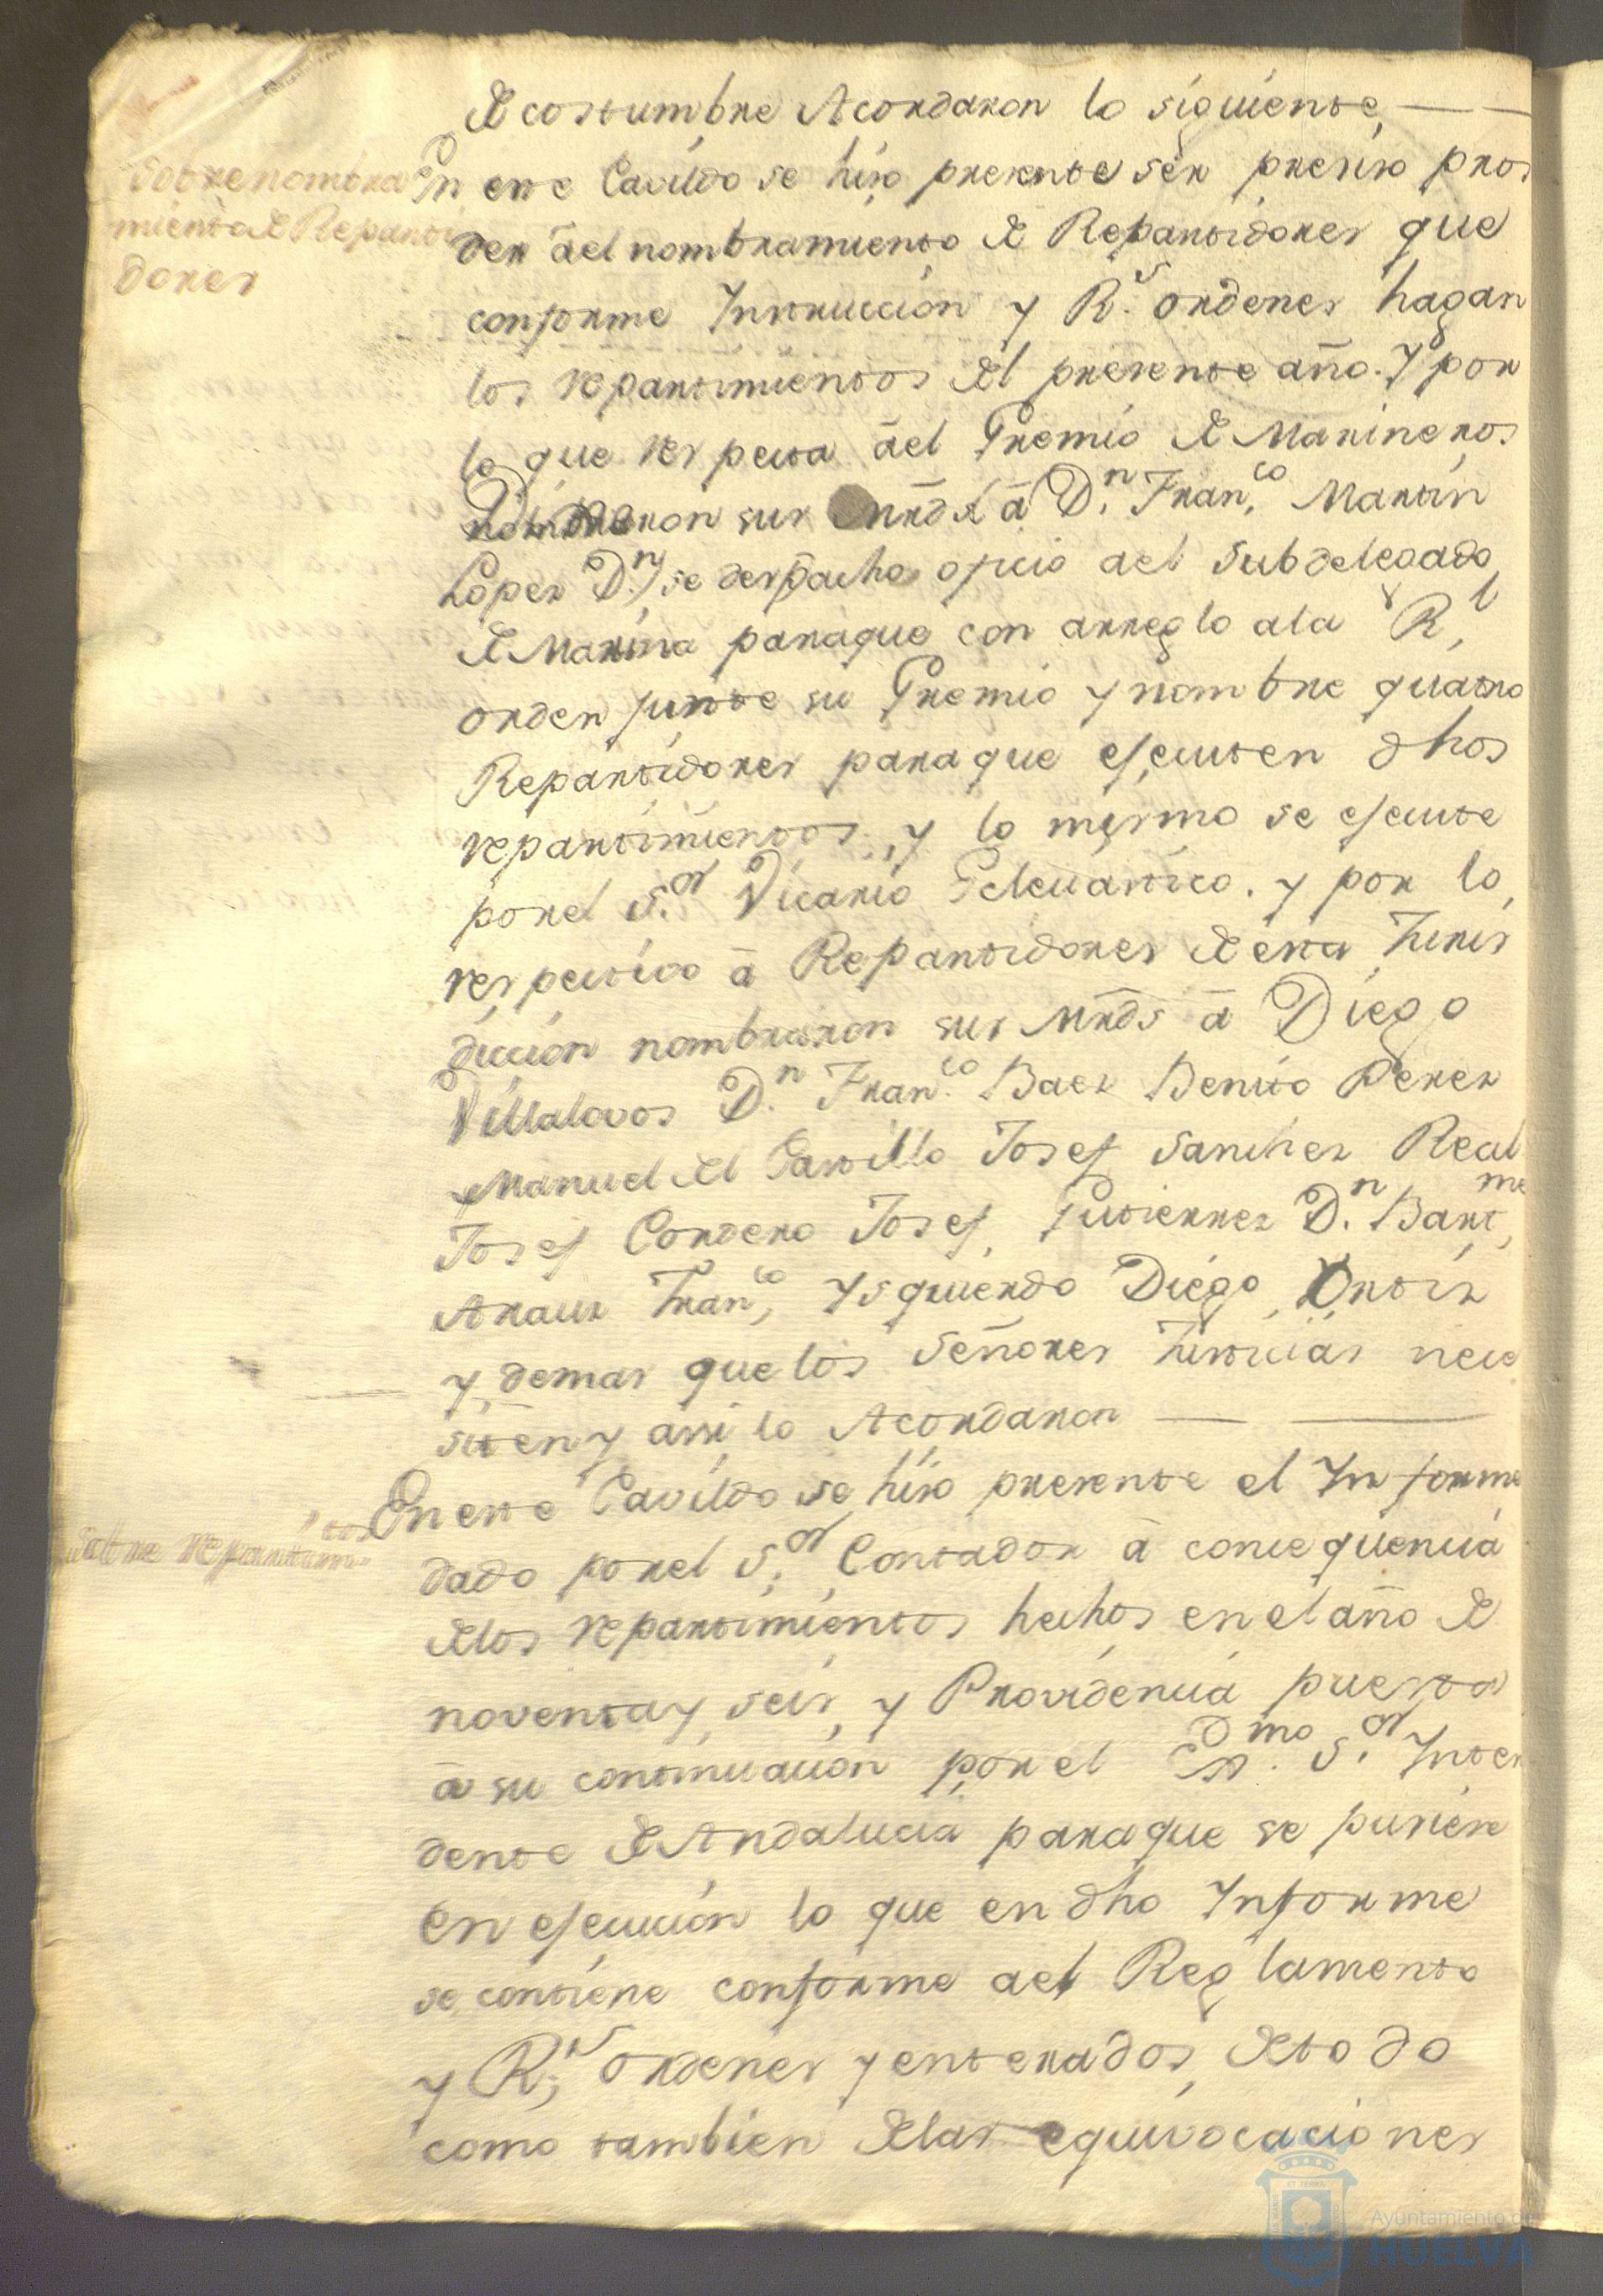 de costumbre Acordaron lo siguiente
Sobre nombra
miento de Reparti
dores
En este Cavildo se hiso presente ser presiso pros
der ael nombramiento de Repartidores que
conforme Instruccion y R.s ordenes hagan
los repartimientos del presente año. Y por
lo que respecta ael Gremio de Marineros
nombraron sus Mrds à D.n Fran.co Martin
Lopez D.n se despache oficio ael Subdelegado
de Marina paraque con arreglo ala R.l
orden junte su Gremio y nombre quatro
Repartidores paraque ejecuten dhos
repartimientos, y lo mismo se ejecute
por el S.or Vicario Eclesiastico. y por lo
respectivo à Repartidores de esta Juris
diccion nombraron sus Mrds à Diego
Villalovos D.n Fran.co Baez Benito Perez
Manuel del Castillo Josef Sanchez Real
Josef Cordero Josef Gutierrez D.n Bart.me
Arauz Fran.co Ysquierdo Diego Ortiz
y demas que los Señores Justicias nece
siten y assi lo Acordaron
Sobre repartim.tos
En este Cavildo se hiso presente el Informe
dado por el S.or Contador à consequencia
delos repartimientos hechos en el año de
noventa y seis, y Providencia puesta
à su continuacion por el Ex.mo S.or Inten
dente de Andalucia paraque se pusiese
en ejecucion lo que en dho Informe
se contiene conforme ael Reglamento
y R.s ordenes y enterados de todo
como tambien delas equivocaciones
Ayuntamiento de
HUELVA